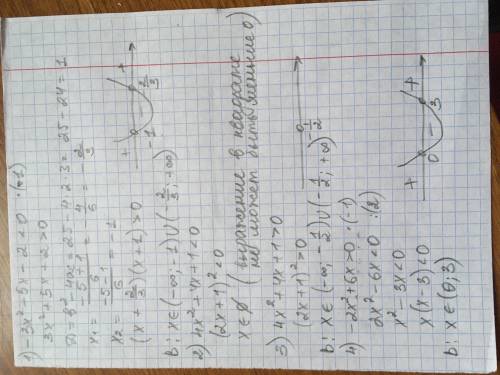 1) -3x² - 5x - 2 < 0 ·(-1)
3x² + 5x + 2 > 0
D = b² - 4ac = 25 - 4·2·3 = 25 - 24 = 1
x₁ = (-5+1)/6 = -4/6 = -2/3
x₂ = (-5-1)/6 = -1
(x + 2/3)(x + 1) > 0
+ - +
-1 -2/3
b: x ∈ (-∞; -1) ∪ (-2/3; +∞)
2) 4x² + 4x + 1 < 0
(2x + 1)² < 0
x ∈ ∅ (выражение в квадрате
не может быть меньше 0)
3) 4x² + 4x + 1 > 0
(2x + 1)² > 0
-1/2
b: x ∈ (-∞; -1/2) ∪ (-1/2; +∞)
4) -2x² + 6x > 0 ·(-1)
2x² - 6x < 0 :(2)
x² - 3x < 0
x(x - 3) < 0
+ - +
0 3
b: x ∈ (0; 3)